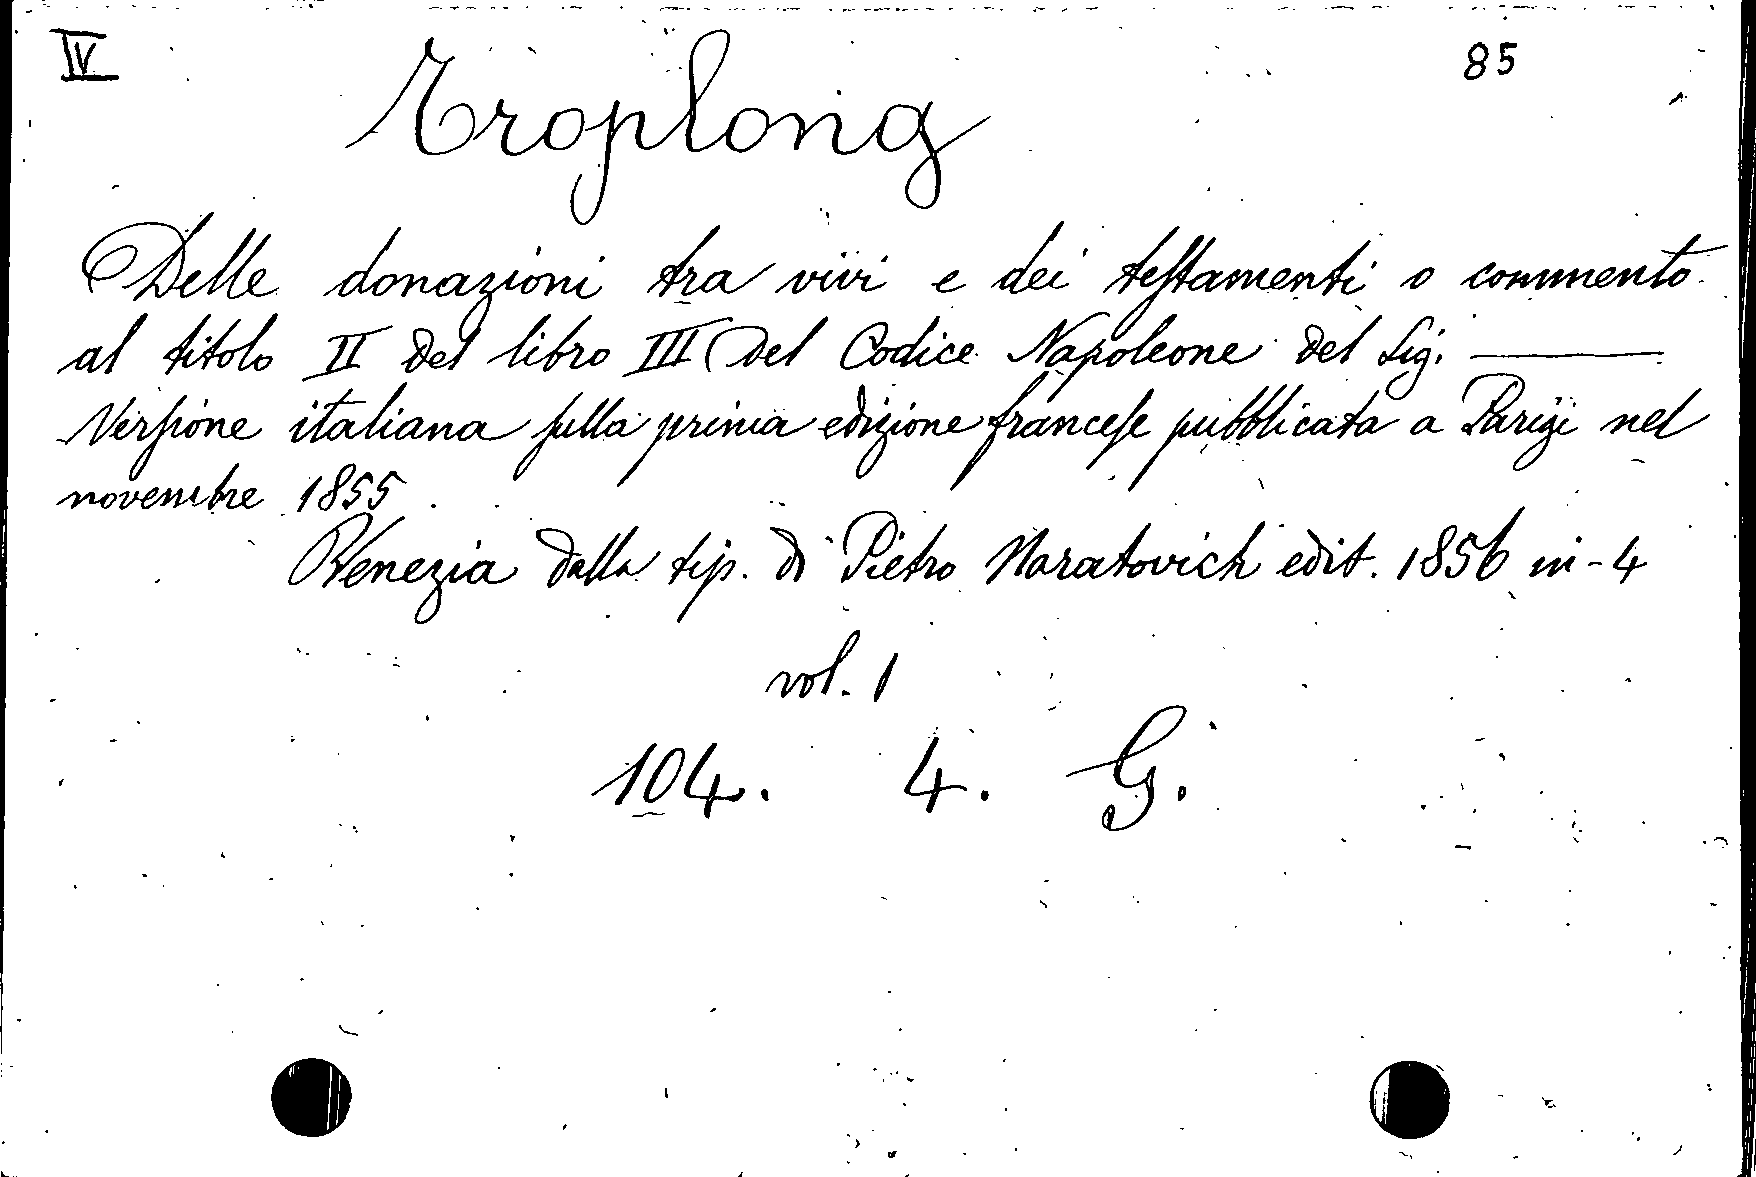 IV 85
Troplong
Delle donazioni tra vivi e dei testamenti o commento
al titolo II del libro III del Codice Napoleone del Sig. ———
Versione italiana sulla prima edizione francese pubblicata a Parigi nel
novembre 1855.
Venezia dalla tip. di Pietro Naratovich edit. 1856 in-4
vol. 1
104. 4. G.